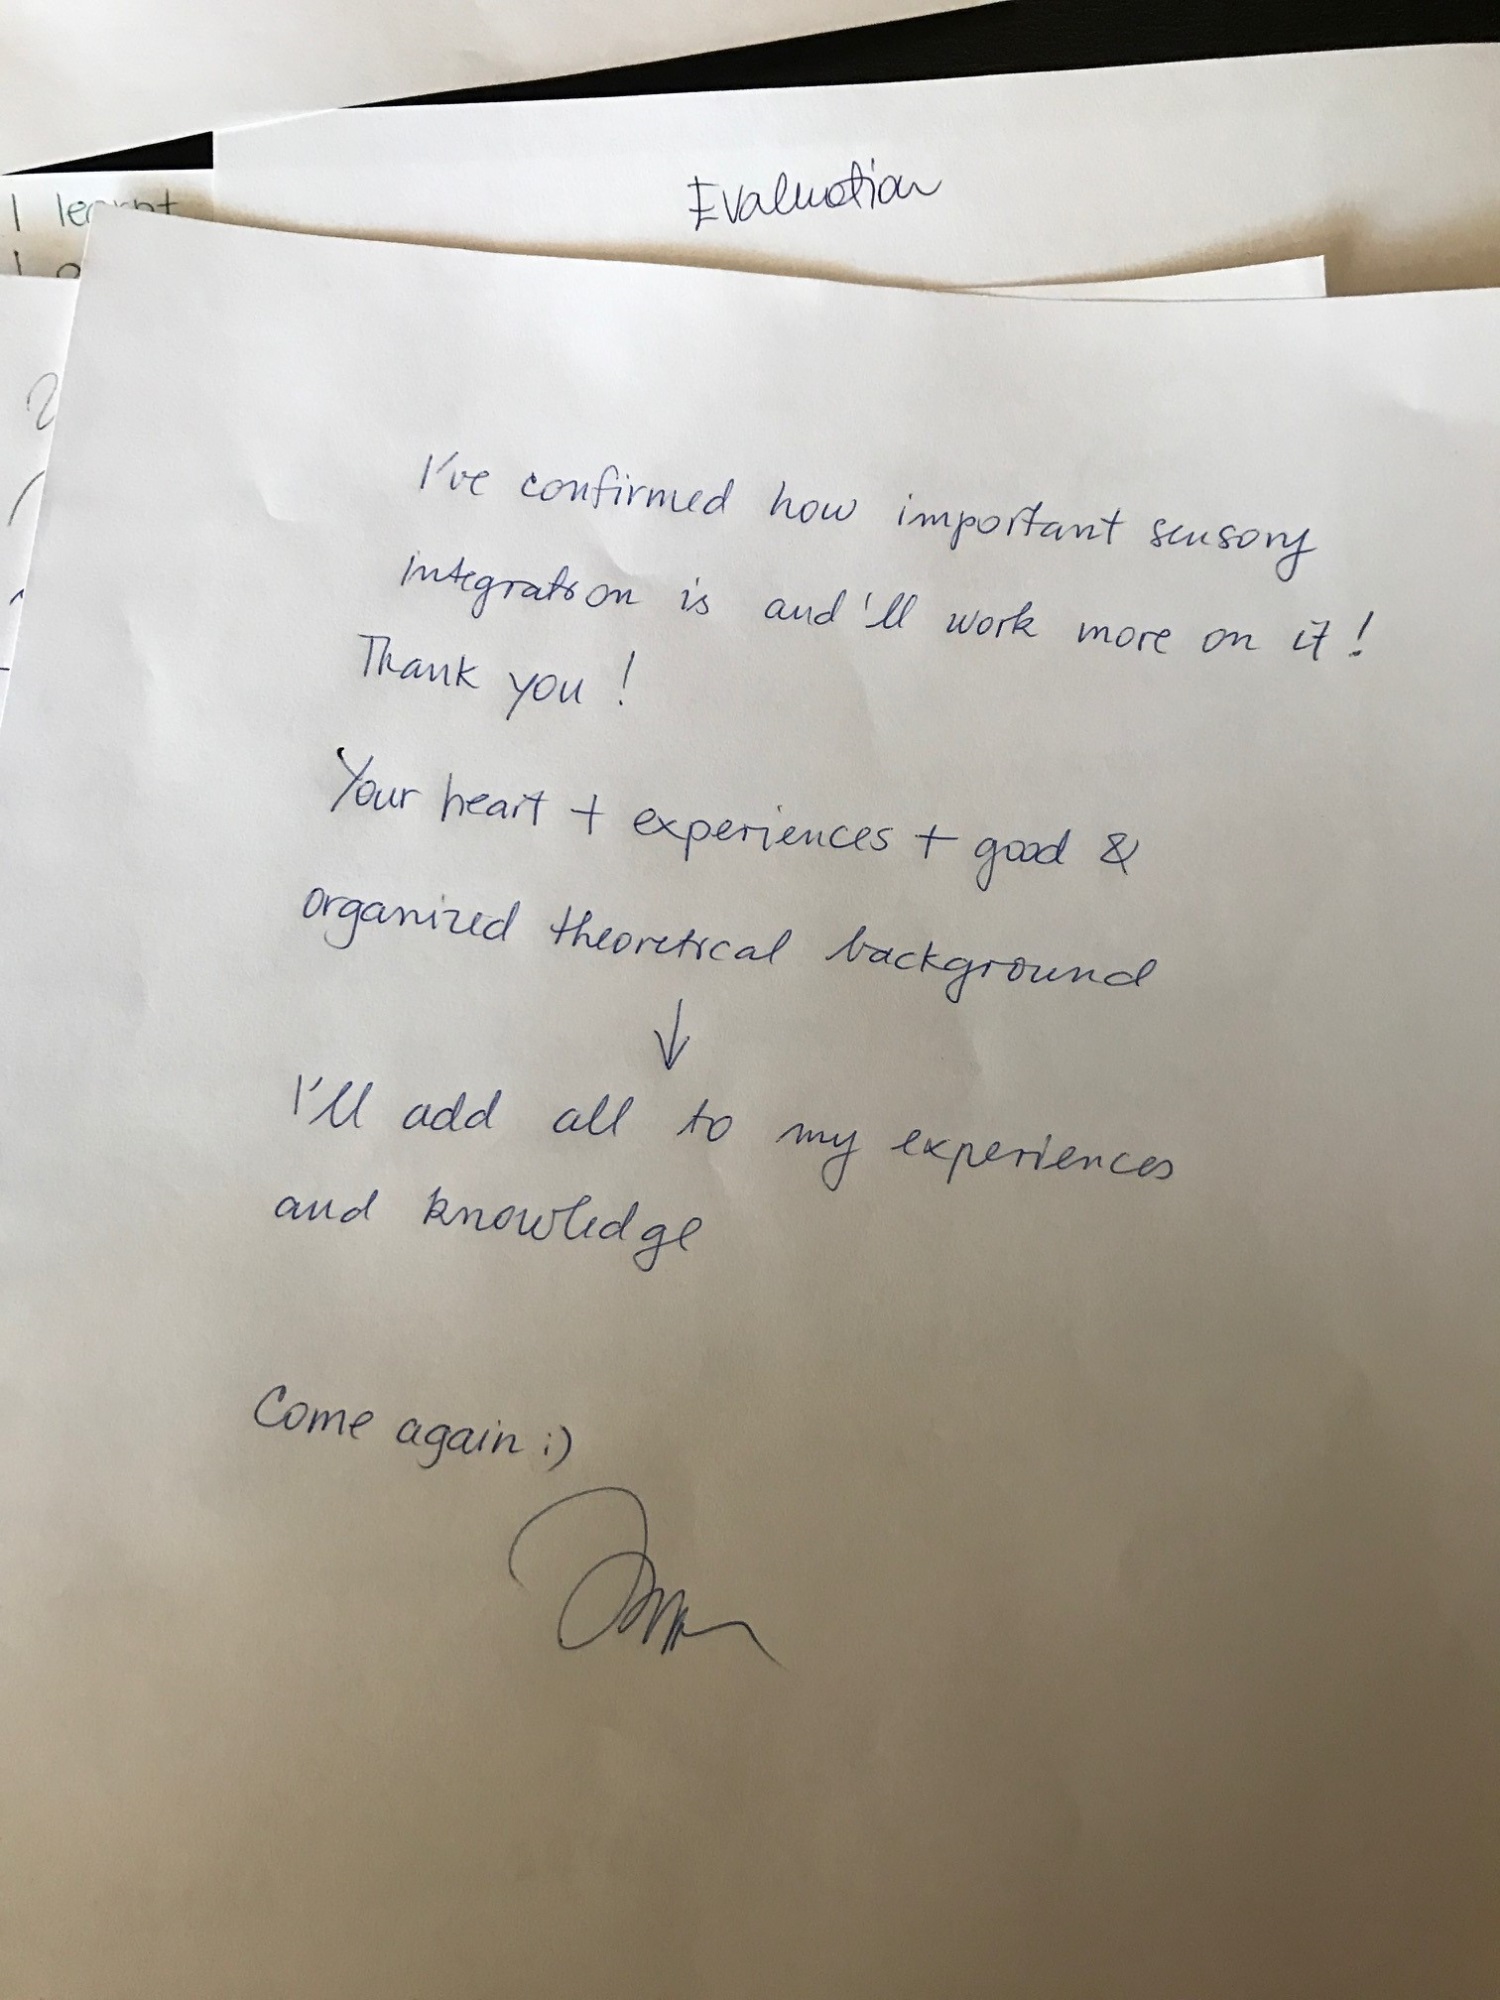 Evaluation
I learnt
I
I've confirmed how important sensory
integration is and 'll work more on it!
Thank you!
Your heart + experiences + good &
organized theoretical background
↓
I'll add all to my experiences
and knowledge
Come again :)